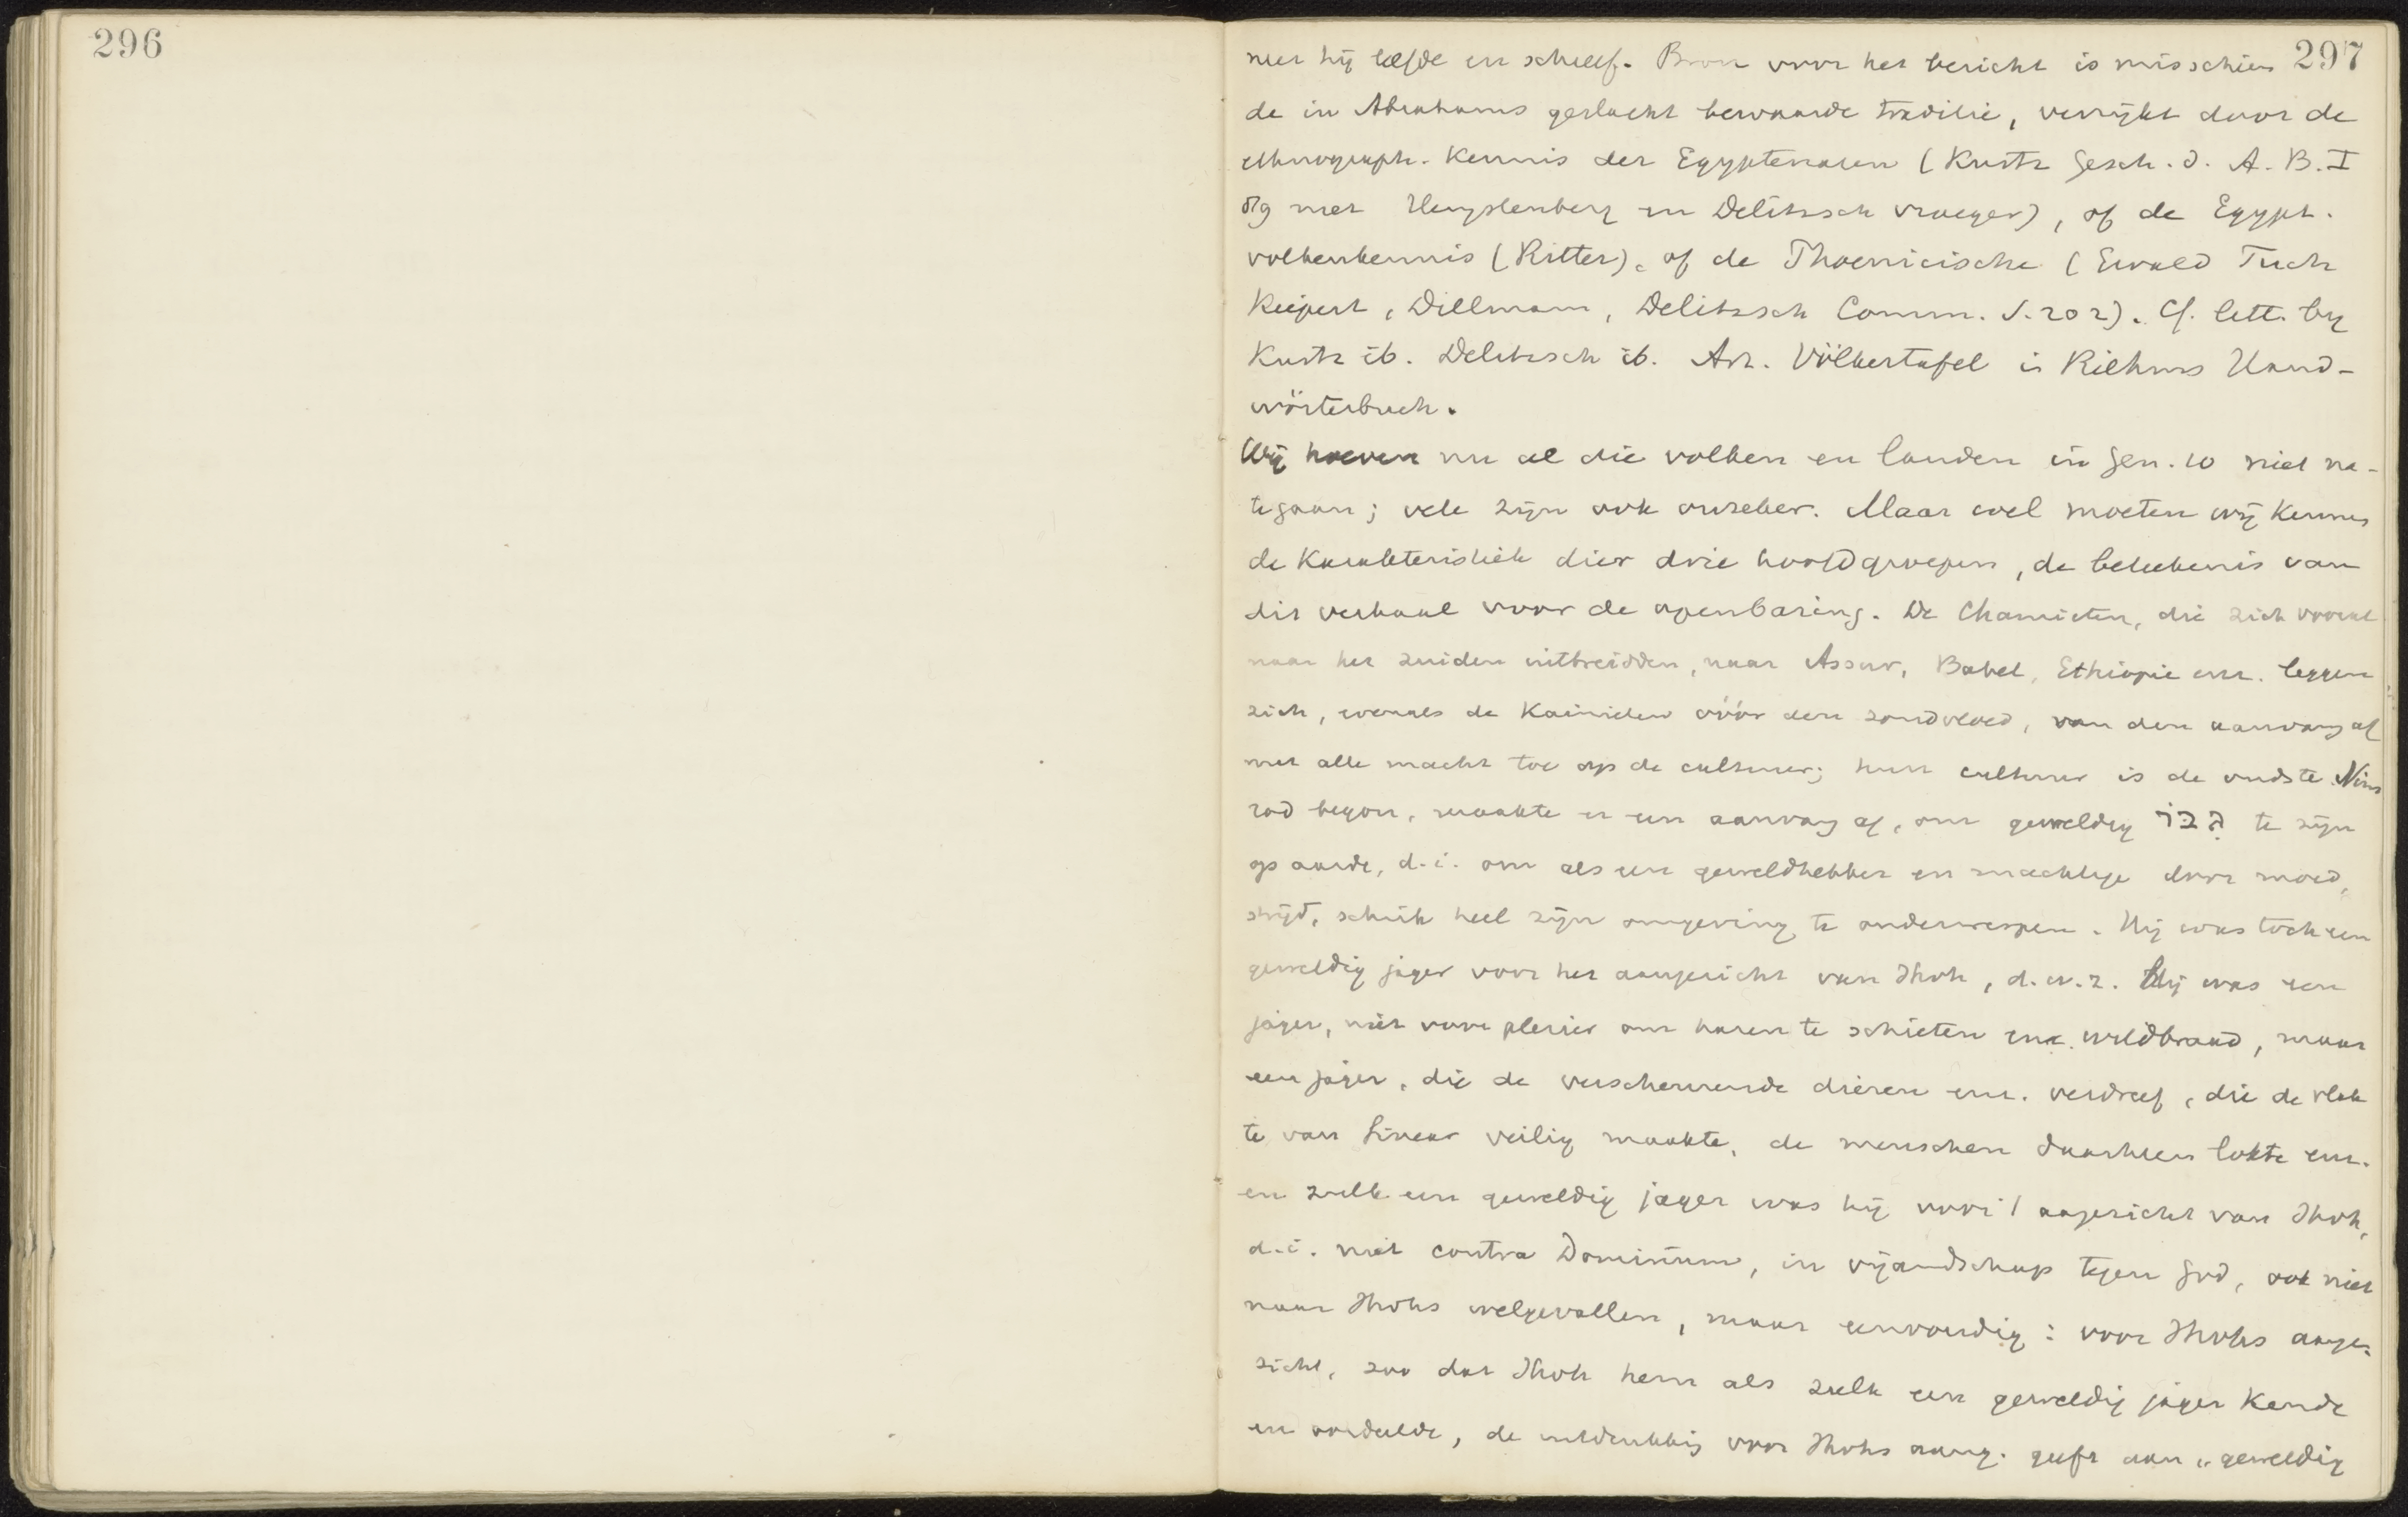 296
297
neer hij leefde en schreef. Bron voor het bericht is misschien
de in Abrahams geslacht bewaarde traditie, verrijkt door de
ethnograph. Kennis der Egyptenaren (Kurtz Gesch. d. A. B. I
§79 met Hengstenberg en Delitzsch vroeger), of de Egypt.
volkenkennis (Ritter), of de Phoenicische (Ewald Tuch
Kiepert, Dillmann, Delitzsch Comm. S. 202). Cf. litt. by
Kurtz ib. Delitzsch ib. Art. Völkertafel in Riehms Hand-
wörterbuch.
Wij hoeven nu al die volken en landen in Gen. 10 niet na-
tegaan; vele zijn ook onzeker. Maar wel moeten wij kennen
de Karakteristiek dier drie hoofdgroepen, de beteekenis van
dit verhaal voor de openbaring. De Chamieten, die zich vooral
naar het zuiden uitbreidden, naar Assur, Babel, Ethiopie enz. leggen
zich, evenals de Kainieten vóór den zondvloed, van den aanvang af
met alle macht toe op de cultuur; hun cultuur is de oudste. Nim
rod begon, maakte er een aanvang af, om geweldig גבר te zijn
op aarde, d.i. om als een geweldhebber en machtige door moed,
strijd, schrik heel zijn omgeving te onderwerpen. Hij was toch een
geweldig jager voor het aangezicht van Jhvh, d.w.z. Hij was een
jager, niet voor plezier om hazen te schieten enz. wildbraad, maar
een jager, die de verscheurende dieren enz. verdreef, die de vlak
te van Sinear veilig maakte, de menschen daarheen lokte enz.
en zulk een geweldig jager was hij voor 't aangezicht van Jhvh,
d.i. niet contra Dominum, in vijandschap tegen God, ook niet
naar Jhvhs welgevallen, maar eenvoudig: voor Jhvhs aange-
zicht, zoo dat Jhvh hem als zulk een geweldig jager kende
en oordeelde, de uitdrukking voor Jhvhs aang. geeft aan „geweldig